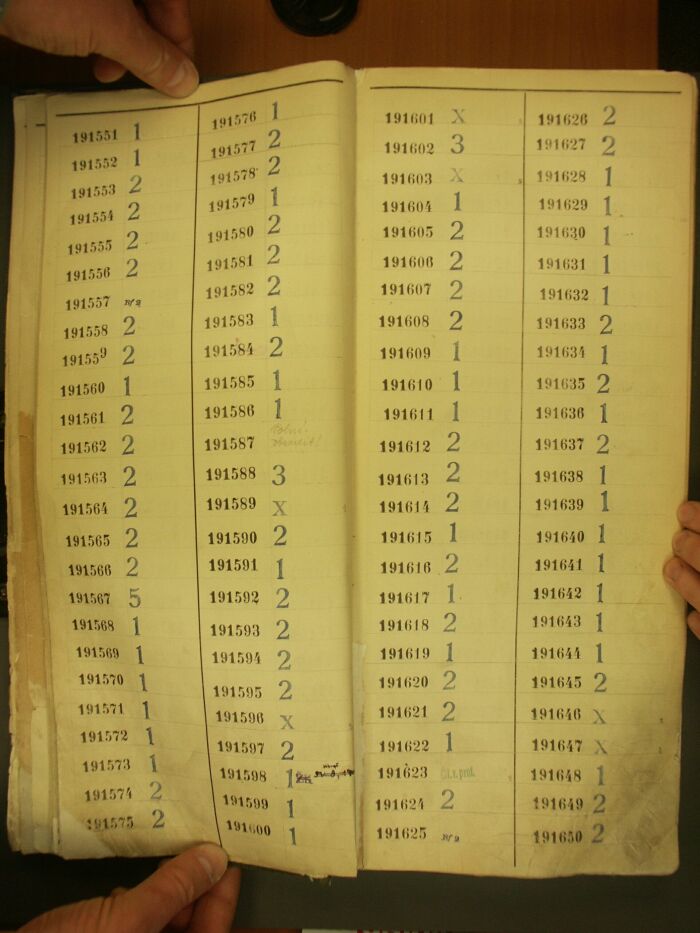 191551 1
191552 1
191553 2
191554 2
191555 2
191556 2
191557
191558 2
191559 2
191560 1
191561 2
191562 2
191563 2
191564 2
191565 2
191566 2
191567 5
191568 1
191569 1
191570 1
191571 1
191572 1
191573 1
191574 2
191575 2
191576 1
191577 2
191578 2
191579 1
191580 2
191581 2
191582 2
191583 1
191584 2
191585 1
191586 1
191587
191588 3
191589 X
191590 2
191591 1
191592 2
191593 2
191594 2
191595 2
191596 X
191597 2
191598 1
191599 1
191600 1
191601 X
191602 3
191603 X
191604 1
191605 2
191606 2
191607 2
191608 2
191609 1
191610 1
191611 1
191612 2
191613 2
191614 2
191615 1
191616 2
191617 1
191618 2
191619 1
191620 2
191621 2
191622 1
191623
191624 2
191625
191626 2
191627 2
191628 1
191629 1
191630 1
191631 1
191632 1
191633 2
191634 1
191635 2
191636 1
191637 2
191638 1
191639 1
191640 1
191641 1
191642 1
191643 1
191644 1
191645 2
191646 X
191647 X
191648 1
191649 2
191650 2